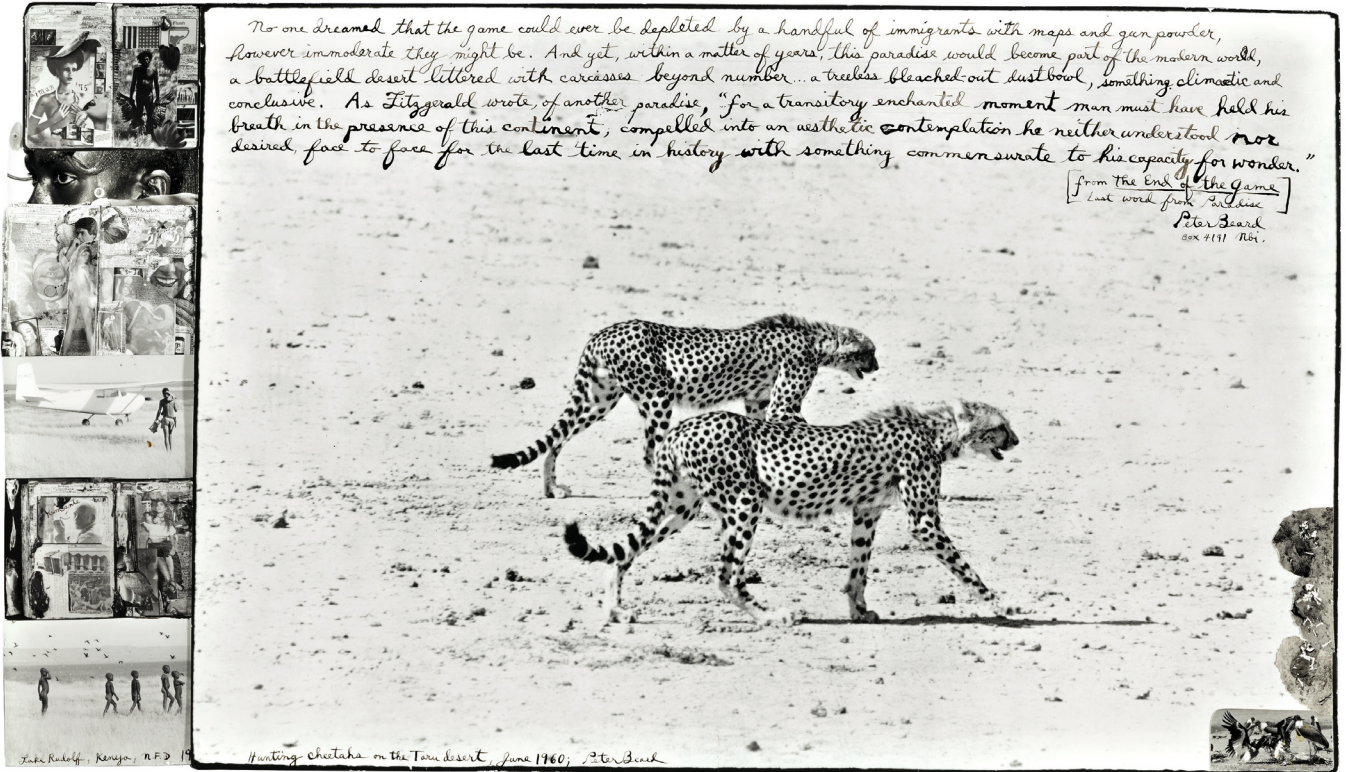 No one dreamed that the game could ever be depleted by a handful of immigrants with maps and gun powder,
however immoderate they might be. And yet, within a matter of years, this paradise would become part of the modern world,
a battlefield desert littered with carcasses beyond number... a treeless bleached-out dustbowl, something climactic and
conclusive. As Fitzgerald wrote, of another paradise, "for a transitory enchanted moment man must have held his
breath in the presence of this continent, compelled into an aesthetic contemplation he neither understood nor
desired, face to face for the last time in history with something commensurate to his capacity for wonder."
[from The End of the Game
Last word from Paradise]
Peter Beard
Box 4191 Nbi.
Lake Rudolf, Kenya, N.F.D 19
Hunting cheetahs on the Taru desert, June 1960; Peter Beard